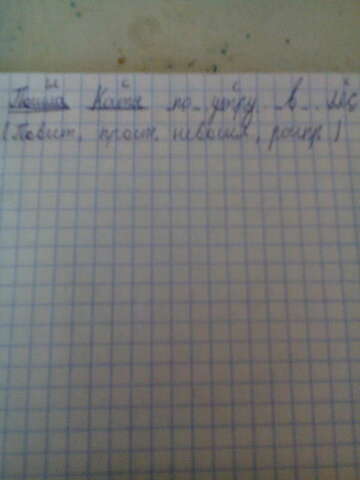 Пошла Катя по утру в лес
(Повит, прост. невоскл, распр.)